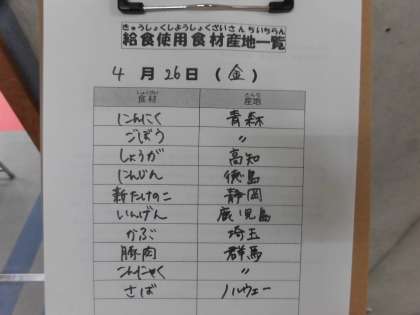 きゅうしょくしようしょくざいさんちいちらん
給食使用食材産地一覧
4月26日(金)
しょくざい さんち
食材 産地
にんにく 青森
ごぼう 〃
しょうが 高知
にんじん 徳島
新たけのこ 静岡
いんげん 鹿児島
かぶ 埼玉
豚肉 群馬
こんにゃく 〃
さば ノルウェー